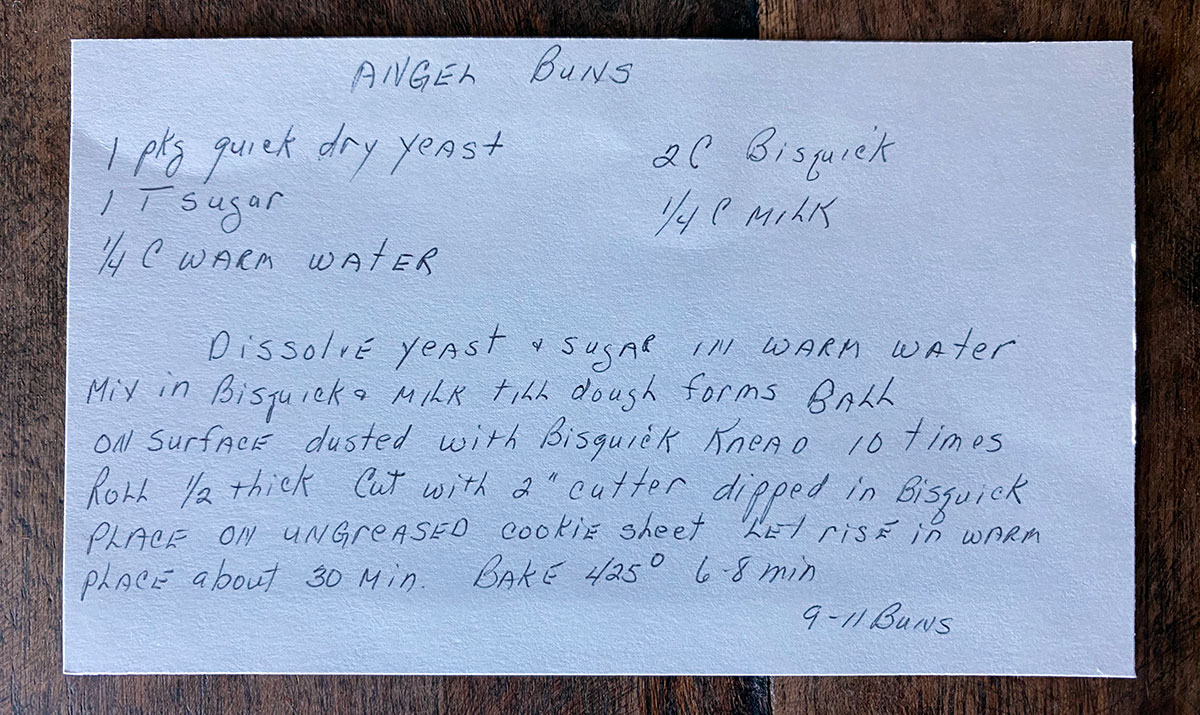 ANGEL BUNS
1 pkg quick dry yeast 2 C Bisquick
1 T sugar 1/4 C MILK
1/4 C WARM WATER
Dissolve yeast & sugar in WARM WATER
Mix in Bisquick & MILK till dough forms BALL
ON SURFACE dusted with Bisquick KNEAD 10 times
ROLL 1/2 thick Cut with 2" cutter dipped in Bisquick
PLACE ON UNGREASED COOKIE sheet LET risE in WARM
PLACE about 30 Min. BAKE 425° 6-8 min
9-11 BUNS